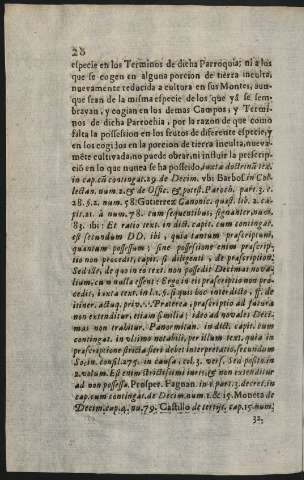 20
especie en los Terminos de dicha Parroquia; ni a los
que se cogen en alguna porcion de tierra inculta,
nuevamente reducida a cultura en sus Montes, aun-
que sean de la misma especie de los que yà se sem-
bravan, y cogian en los demas Campos, y Termi-
nos de dicha Parrochia, por la razon de que como
falta la possession en los frutos de diferente especie, y
en los cogidos en la porcion de tierra inculta, nueva-
mẽte cultivada, no puede obrar, ni influir la prescrip-
ciò en lo que nunca se ha posseido, juxta doctrinã tex.
in cap. cũ contingat. 29. de Decim. vbi Barbos. in Col-
lectan. num. 2. & de Offic. & potest. Paroch. part. 3. c.
28. §. 2. num. 58. Gutierrez Canonic. quæst. lib. 2. ca-
pit. 21. à num. 78. cum sequentibus, signanter, num.
83. ibi: Et ratio text. in dict. capit. cum contingat.
est secundum DD. ibi, quia tantum præscriptum,
quantum possessum; sine possessione enim præscrip-
tio non procedit, capit. si diligenti, de præscription.
Sed sic, de quo in eo text. non possedit Decimas nova-
lium, cum nulla essent: Ergo in eis præscriptio non pro-
cedit, juxta text. in l. 1. §. si quis hoc interdicto, ff. de
itiner. actuq. priv. Præterea, præscriptio ad futura
non extenditur, etiam similia; ideo ad novales Deci-
mas non trahitur. Panormitan. in dict. capit. cum
contingat. in vltimo notabili, per illum text. quia in
præscriptione stricta fieri debet interpretatio, secundum
So, in consil. 275. in causa, col. 3. vers. Sed post
2. volum. Est enim strictissimi iuris, & non extenditur
ad non possessa. Prosper. Fagnan. in 1. part. 3. decret. in
cap. cum contingat. de Decim. num. 1. & 15. Moneta de
Decim. cap. 4. nu. 79. Castillo de tertijs, cap. 15. num.
32,